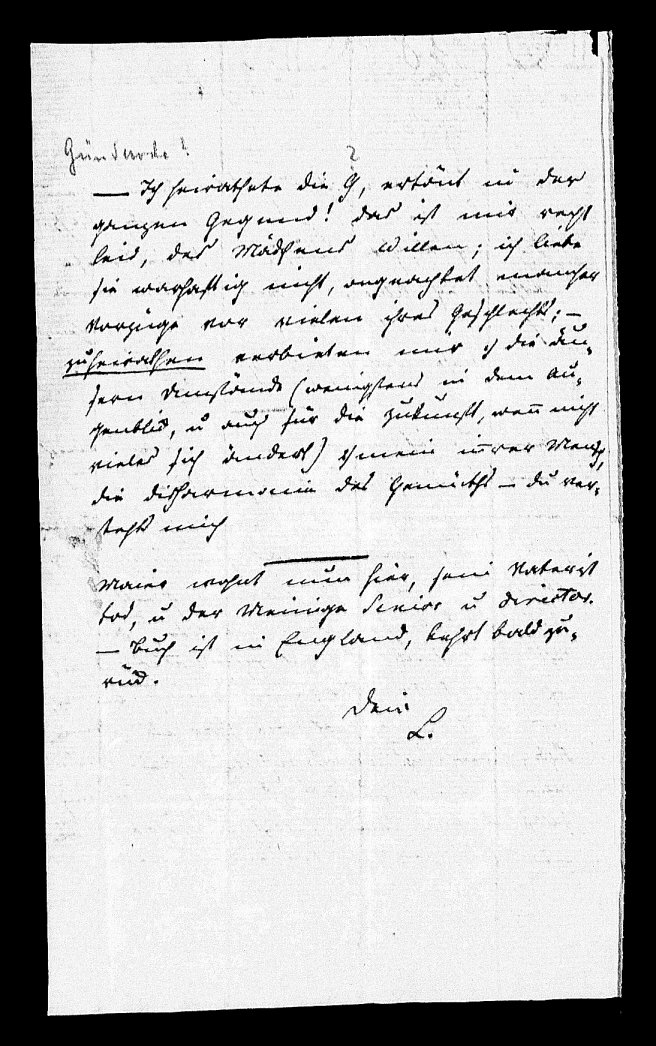 Günderode?
?
— Ich heirathete die G, ertönt in der
ganzen Gegend! das ist mir recht
leid, des Mädchens willen; ich liebe
sie warhaftig nicht, ongeachtet mancher
Vorzüge vor vielen ihres Geschlechts; —
zu heirathen verbieten mir die äu-
sern Umstände (wenigstens in dem Au-
genblick, u auch für die Zukunft, wenn nicht
vieles sich ändert) mein innrer Mensch,
die disharmonie des Gemüths — du ver-
stehst mich
Maier wohnt nun hier, sein Vater ist
tod, u der Meinige Senior u Director.
— Buch ist in England, kehrt bald zu-
rück.
Dein
L.